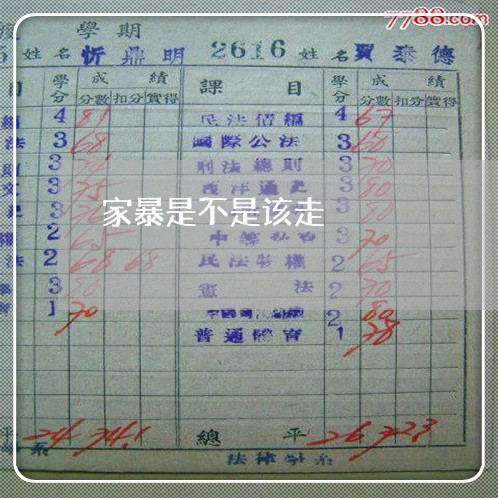 7788.com
學期
姓名 忻鼎明 2616 姓名 賈泰德
目 學分 成績 課目 學分 成績
分數 扣分 實得 分數 扣分 實得
4 81 民法債編 4 67
法 3 68 國際公法 3 60
3 刑法總則 3 70
3 75 西洋通史 3 80
家暴是不是该走
3 3 80
2 65 3 70
法 2 68 68 民法物權 2 65
3 80 憲法 2 70
1 70 2 80
普通體育 1 78
24 74.1 總平 26 72.3
系 法律學系